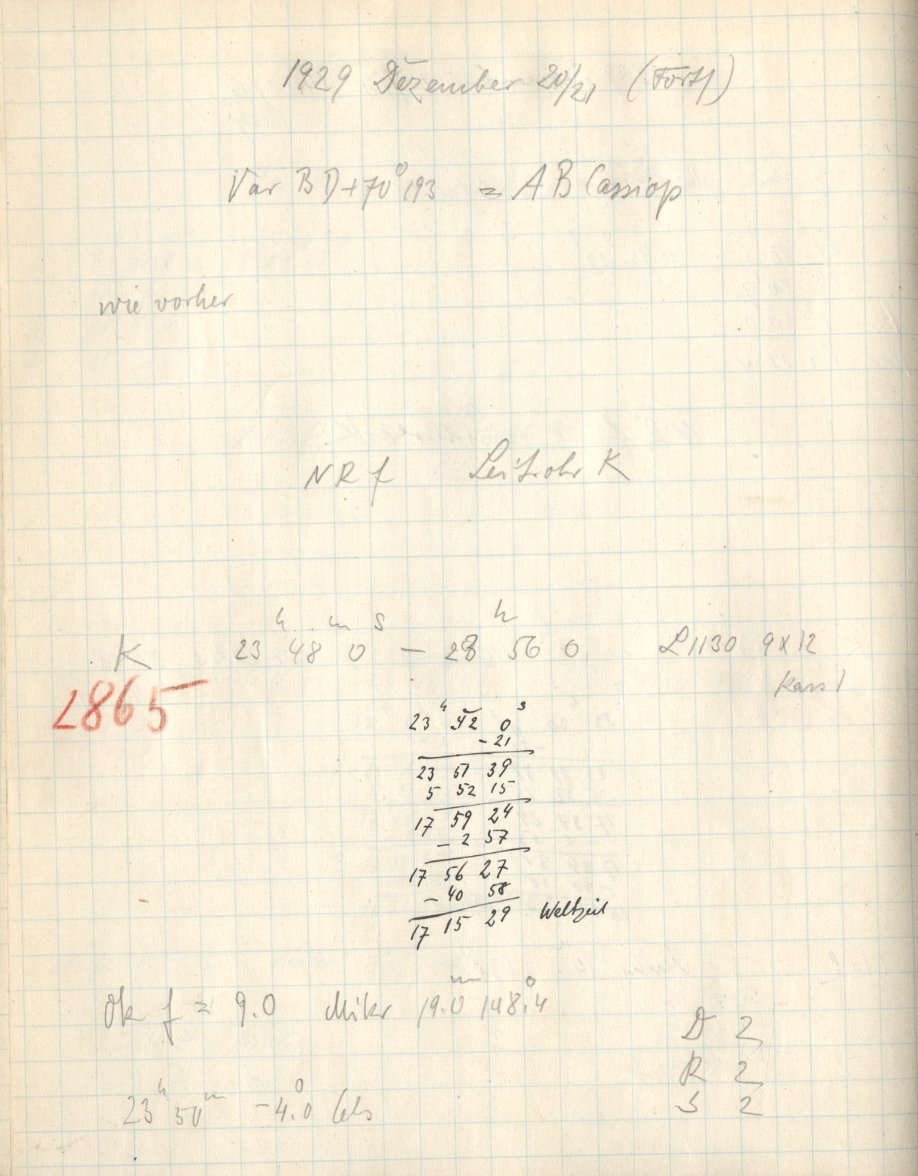 1929 Dezember 20/21 (Forts)
Var BD+70°193 = AB Cassiop
wie vorher
NRf Leitrohr K
K 23h 48m 0s – 28h 56 0 L1130 9x12
Kass 1
2865
23h 52 0s
-21
23 51 39
5 52 15
17 59 24
- 2 57
17 56 27
- 40 58
17 15 29 Weltzeit
Ok f = 9.0 Mikr 19.0m 148.4°
D 2
R 2
S 2
23h 50m -4.0° Cels